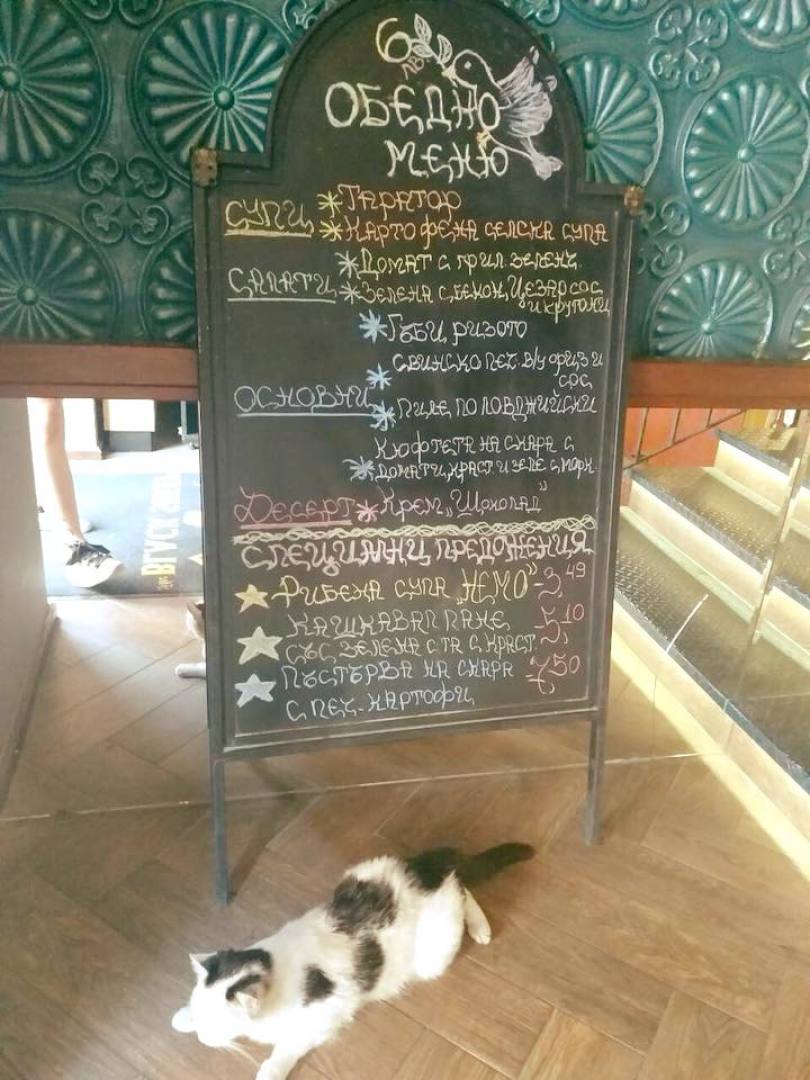 6
лв
ОБЕДНО
МЕНЮ
СУПИ * ТАРАТОР
* КАРТОФЕНА СЕЛСКА СУПА
* ДОМАТ С ГРИЛ. ЗЕЛЕНЧ.
САЛАТИ * ЗЕЛЕНА С БЕКОН, ЦЕЗАР СОС
И КРУТОНИ
* ГЪБИ РИЗОТО
* СВИНСКО ПЕЧ. В/У ОРИЗ И
СОС
ОСНОВНИ * ПИЛЕ ПО ЛОВДЖИЙСКИ
* КЮФТЕТА НА СКАРА С
ДОМАТИ, КРАСТ. И ЗЕЛЕ С МОРК.
ДЕСЕРТ * КРЕМ „ШОКОЛАД"
СПЕЦИАЛНИ ПРЕДОЖЕНИЯ
РИБЕНА СУПА „НЕМО" - 3,49
КАШКАВАЛ ПАНЕ - 5,10
СЪС ЗЕЛЕНА С-ТА С КРАСТ.
ПЪСТЪРВА НА СКАРА 7,50
С ПЕЧ. КАРТОФИ